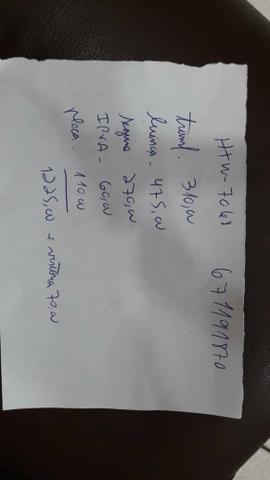 HTW-7061 671191870
transf. 310,00
licença - 475,00
seguro 270,00
IPVA - 60,00
placa - 110,00
1225,00 + vistoria 70,00